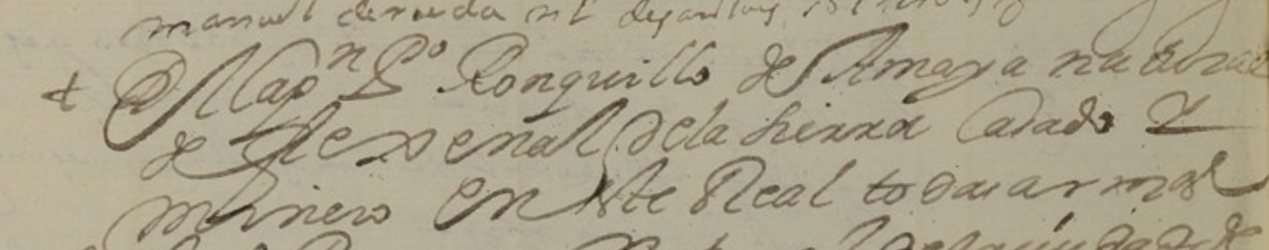 manuel de rueda
+ El Capn Po Ronquillo de Amaya natural
de Flexenal de la sierra Casado Y
minero En este Real todas armas